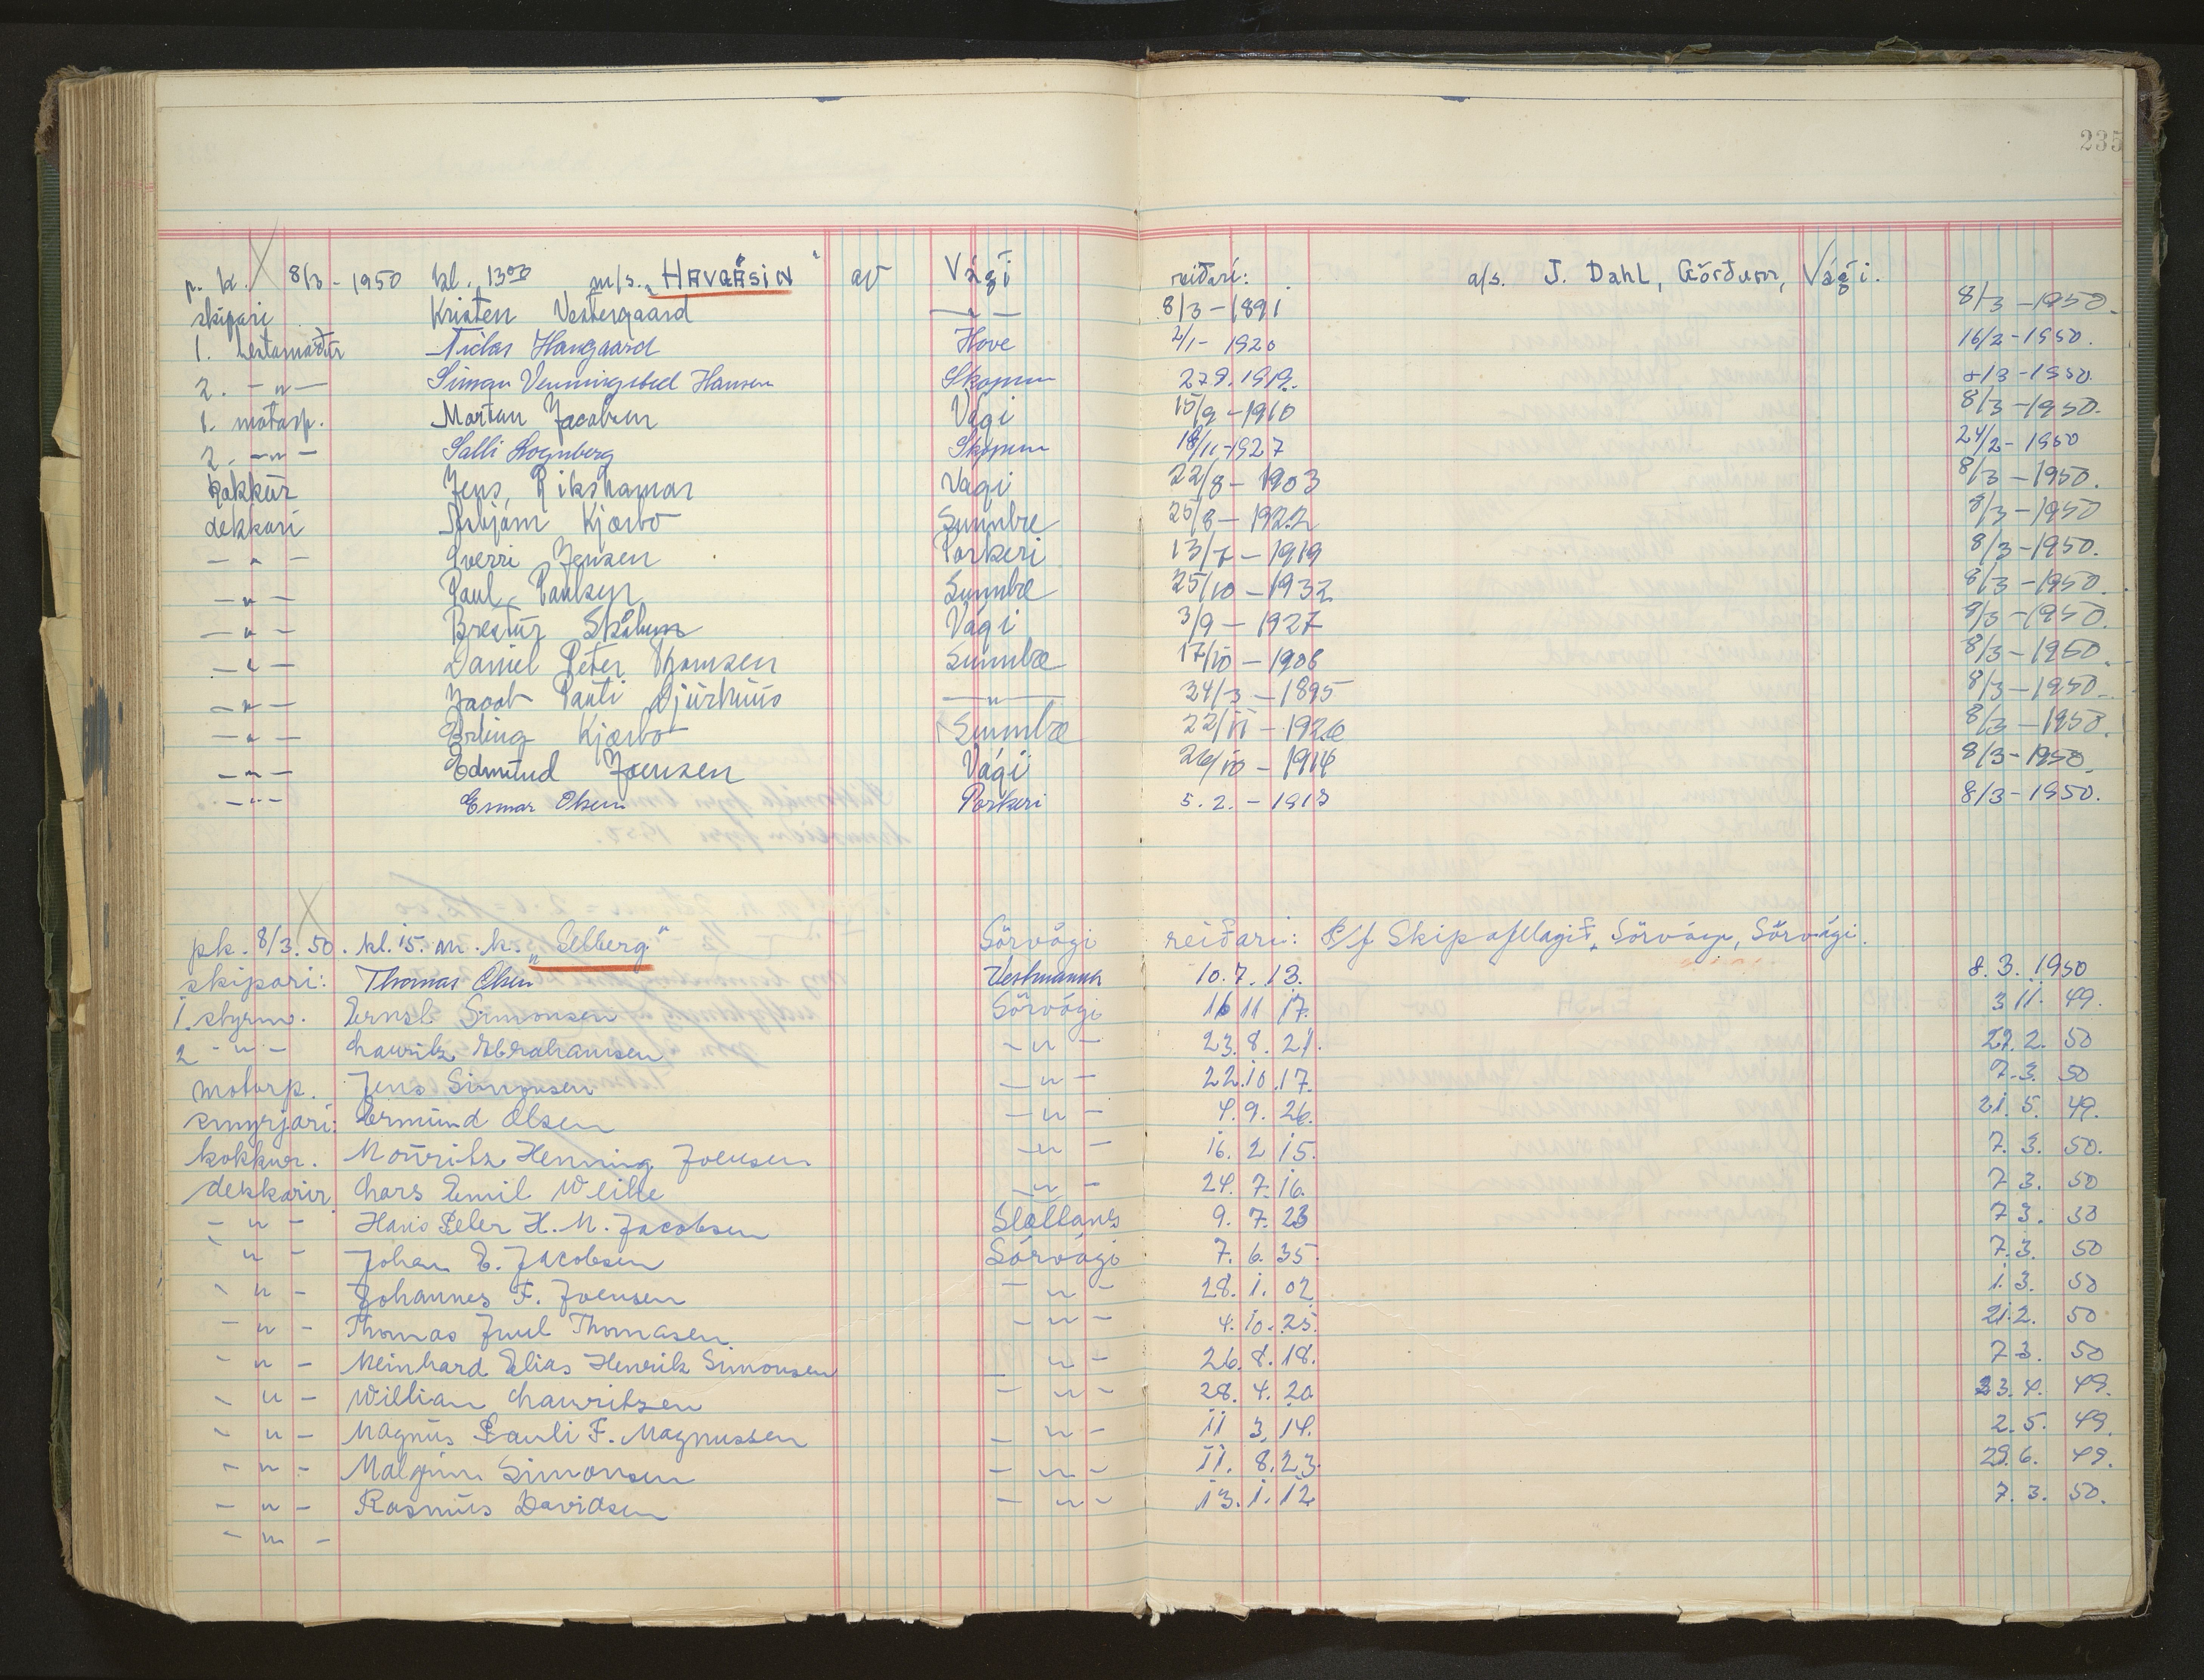 235
p. k. 8/3 - 1950 kl. 13⁰⁰ m/s. „HAVGÁSIN" av Vági reiðarí: a/s. J. Dahl, Görðum, Vági.
skipari Kristen Vestergaard — " — 8/3 - 1891 8/3 - 1950.
1. bestamaður Niclas Haugaard Hove 2/1 - 1920 16/2 - 1950.
2. — " — Simun Venningsted Hansen Skopun 27 9. 1919. 8/3 - 1950.
1. motorp. Mortan Jacobsen Vági 15/9 - 1910 8/3 - 1950.
2. — " — Salli Sognberg Skopun 18/11 - 1927 24/2 - 1950
kokkur Jens Rikshamar Vagi 22/8 - 1903 8/3 - 1950.
dekkari Asbjørn Kjærbo Sumbæ 25/8 - 1922 8/3 - 1950
— " — Sverri Jensen Porkeri 13/7 - 1919 8/3 - 1950.
— " — Paul Paulsen Sumbæ 25/10 - 1932 8/3 - 1950.
— " — Brestur Skålum Vági 3/9 - 1927 8/3 - 1950.
— " — Daniel Peter Thomsen Sumbæ 17/10 - 1906 8/3 - 1950.
— " — Jacob Pauli Djurhuus — " — 24/3 - 1895 8/3 - 1950.
— " — Erling Kjærbo Sumbæ 22/11 - 1926 8/3 - 1950.
— " — Edmund Joensen Vági 26/10 - 1914 8/3 - 1950.
— " — Esmar Olsen Porkeri 5. 2. - 1913 8/3 - 1950.
pk. 8/3. 50. kl. 15. m. k. „Selberg" Sörvági reiðari: P/f Skipafelagið, Sörvági.
skipari: Thomas Olsen Vestmanna 10. 7. 13. 8. 3. 1950
1. styrm. Ernst Simonsen Sörvági 16 11 17. 3 11. 49.
2 - " - Lauritz Abrahamsen - " - 23. 8. 21. 27. 2. 50
motorp. Jens Simonsen - " - 22. 10. 17. 7. 3. 50
smyrjari: Ermund Olsen - " - 4. 9. 26. 21. 5. 49.
kokkur. Mouritz Henning Joensen - " - 16. 2 15. 7. 3. 50.
dekkarir Lars Emil Weihe - " - 24. 7. 16. 7 3. 50
- " - Hans Peter H. M. Jacobsen Slættanes 9. 7. 23 7 3. 50
- " - Johan E. Jacobsen Sörvági 7. 6. 35. 7. 3. 50
- " - Johannes F. Joensen - " - 28. 1. 02 1. 3. 50
- " - Thomas Juul Thomasen - " - 4. 10. 25. 21. 2. 50
- " - Meinhard Elias Henrik Simonsen " - 26. 8. 18. 7 3. 50
- " - William Lauritzen - " - 28. 4. 20. 23. 4. 49.
- " - Magnus Pauli F. Magnussen - " - 11 3. 14. 2. 5. 49.
- " - Malgrim Simonsen - " - 11. 8. 23. 29. 6. 49.
- " - Rasmus Davidsen - " - 13. 1. 12 7. 3. 50.
- " -